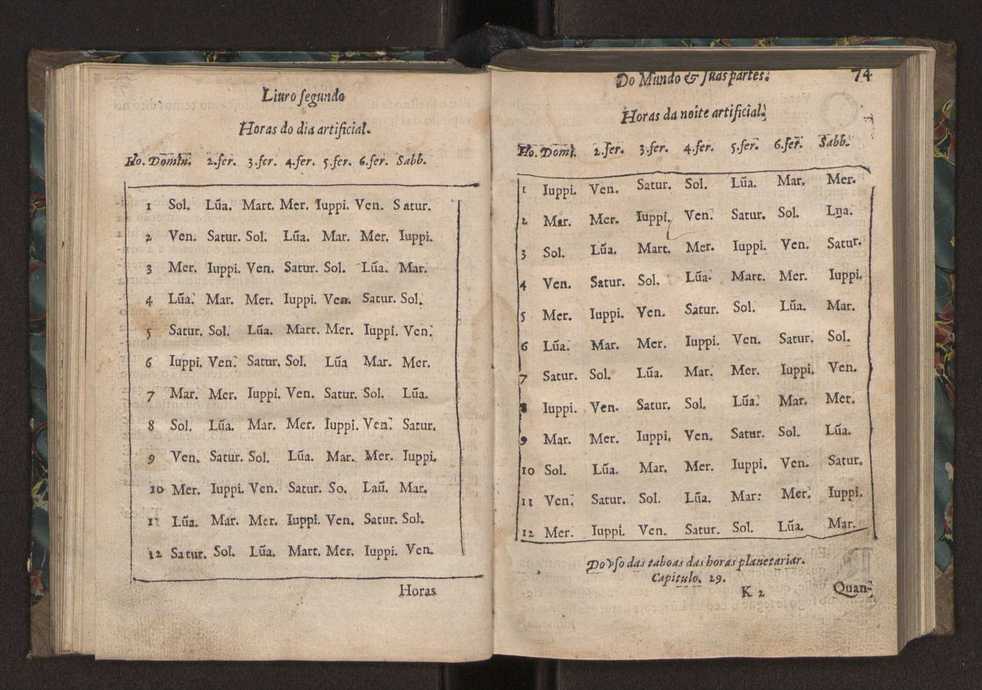 Liuro segundo
Horas do dia artificial.
Ho. Domin. 2.fer. 3.fer. 4.fer. 5.fer. 6.fer. Sabb.
1 Sol. Lũa. Mart. Mer. Iuppi. Ven. Satur.
2 Ven. Satur. Sol. Lũa. Mar. Mer. Iuppi.
3 Mer. Iuppi. Ven. Satur. Sol. Lũa. Mar.
4 Lũa. Mar. Mer. Iuppi. Ven. Satur. Sol.
5 Satur. Sol. Lũa. Mart. Mer. Iuppi. Ven.
6 Iuppi. Ven. Satur. Sol. Lũa Mar. Mer.
7 Mar. Mer. Iuppi. Ven. Satur. Sol. Lũa.
8 Sol. Lũa. Mar. Mer. Iuppi. Ven. Satur.
9 Ven. Satur. Sol. Lũa. Mar. Mer. Iuppi.
10 Mer. Iuppi. Ven. Satur. So. Laũ. Mar.
11 Lũa. Mar. Mer. Iuppi. Ven. Satur. Sol.
12 Satur. Sol. Lũa. Mart. Mer. Iuppi. Ven.
Horas
Do Mundo & suas partes. 74
Horas da noite artificial.
Ho. Domi. 2.fer. 3.fer. 4.fer. 5.fer. 6.fer. Sabb.
1 Iuppi. Ven. Satur. Sol. Lũa. Mar. Mer.
2 Mar. Mer. Iuppi. Ven. Satur. Sol. Lũa.
3 Sol. Lũa. Mart. Mer. Iuppi. Ven. Satur.
4 Ven. Satur. Sol. Lũa. Mart. Mer. Iuppi.
5 Mer. Iuppi. Ven. Satur. Sol. Lũa. Mar.
6 Lũa. Mar. Mer. Iuppi. Ven. Satur. Sol.
7 Satur. Sol. Lũa. Mar. Mer. Iuppi. Ven.
8 Iuppi. Ven. Satur. Sol. Lũa. Mar. Mer.
9 Mar. Mer. Iuppi. Ven. Satur. Sol. Lũa.
10 Sol. Lũa. Mar. Mer. Iuppi. Ven. Satur.
11 Ven. Satur. Sol. Lũa. Mar: Mer. Iuppi.
12 Mer. Iuppi. Ven. Satur. Sol. Lũa. Mar.
Do vso das taboas das horas planetariar.
Capitulo. 29.
K 2 Quan-